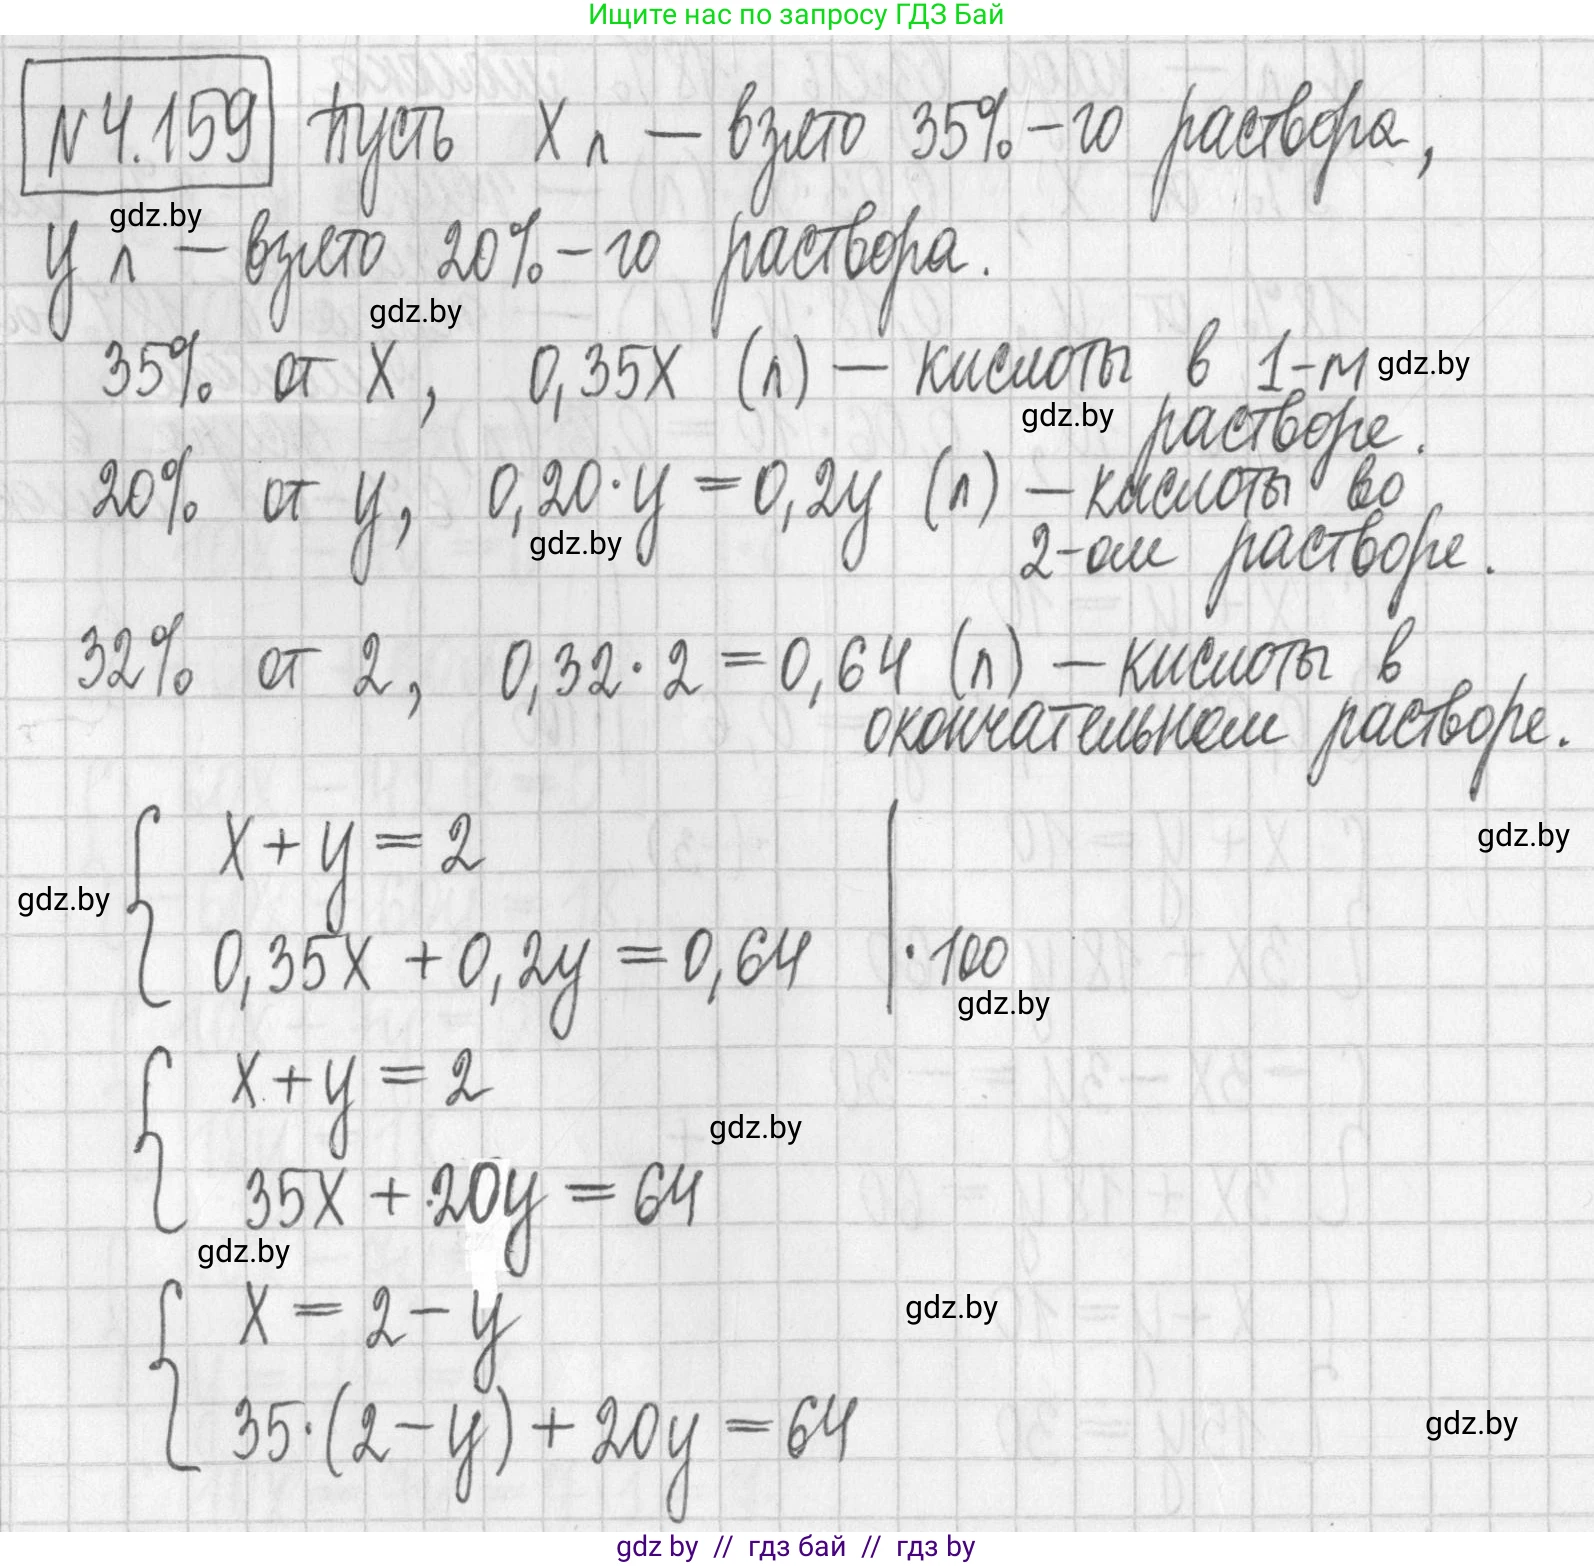 Ищите нас по запросу ГДЗ Бай
№4.159 Пусть x л — взято 35%-го раствора,
gdz.by
y л — взято 20%-го раствора.
gdz.by
35% от x, 0,35x (л) — кислоты в 1-м gdz.by
gdz.by
растворе.
20% от y, 0,20·y = 0,2y (л) — кислоты во
gdz.by
2-ом растворе.
32% от 2, 0,32·2 = 0,64 (л) — кислоты в
окончательном растворе.
x + y = 2
gdz.by
gdz.by
0,35x + 0,2y = 0,64 | ·100
gdz.by
x + y = 2
gdz.by
35x + 20y = 64
gdz.by
x = 2 - y
gdz.by
35·(2 - y) + 20y = 64
gdz.by
gdz by // гдз бай // гдз by